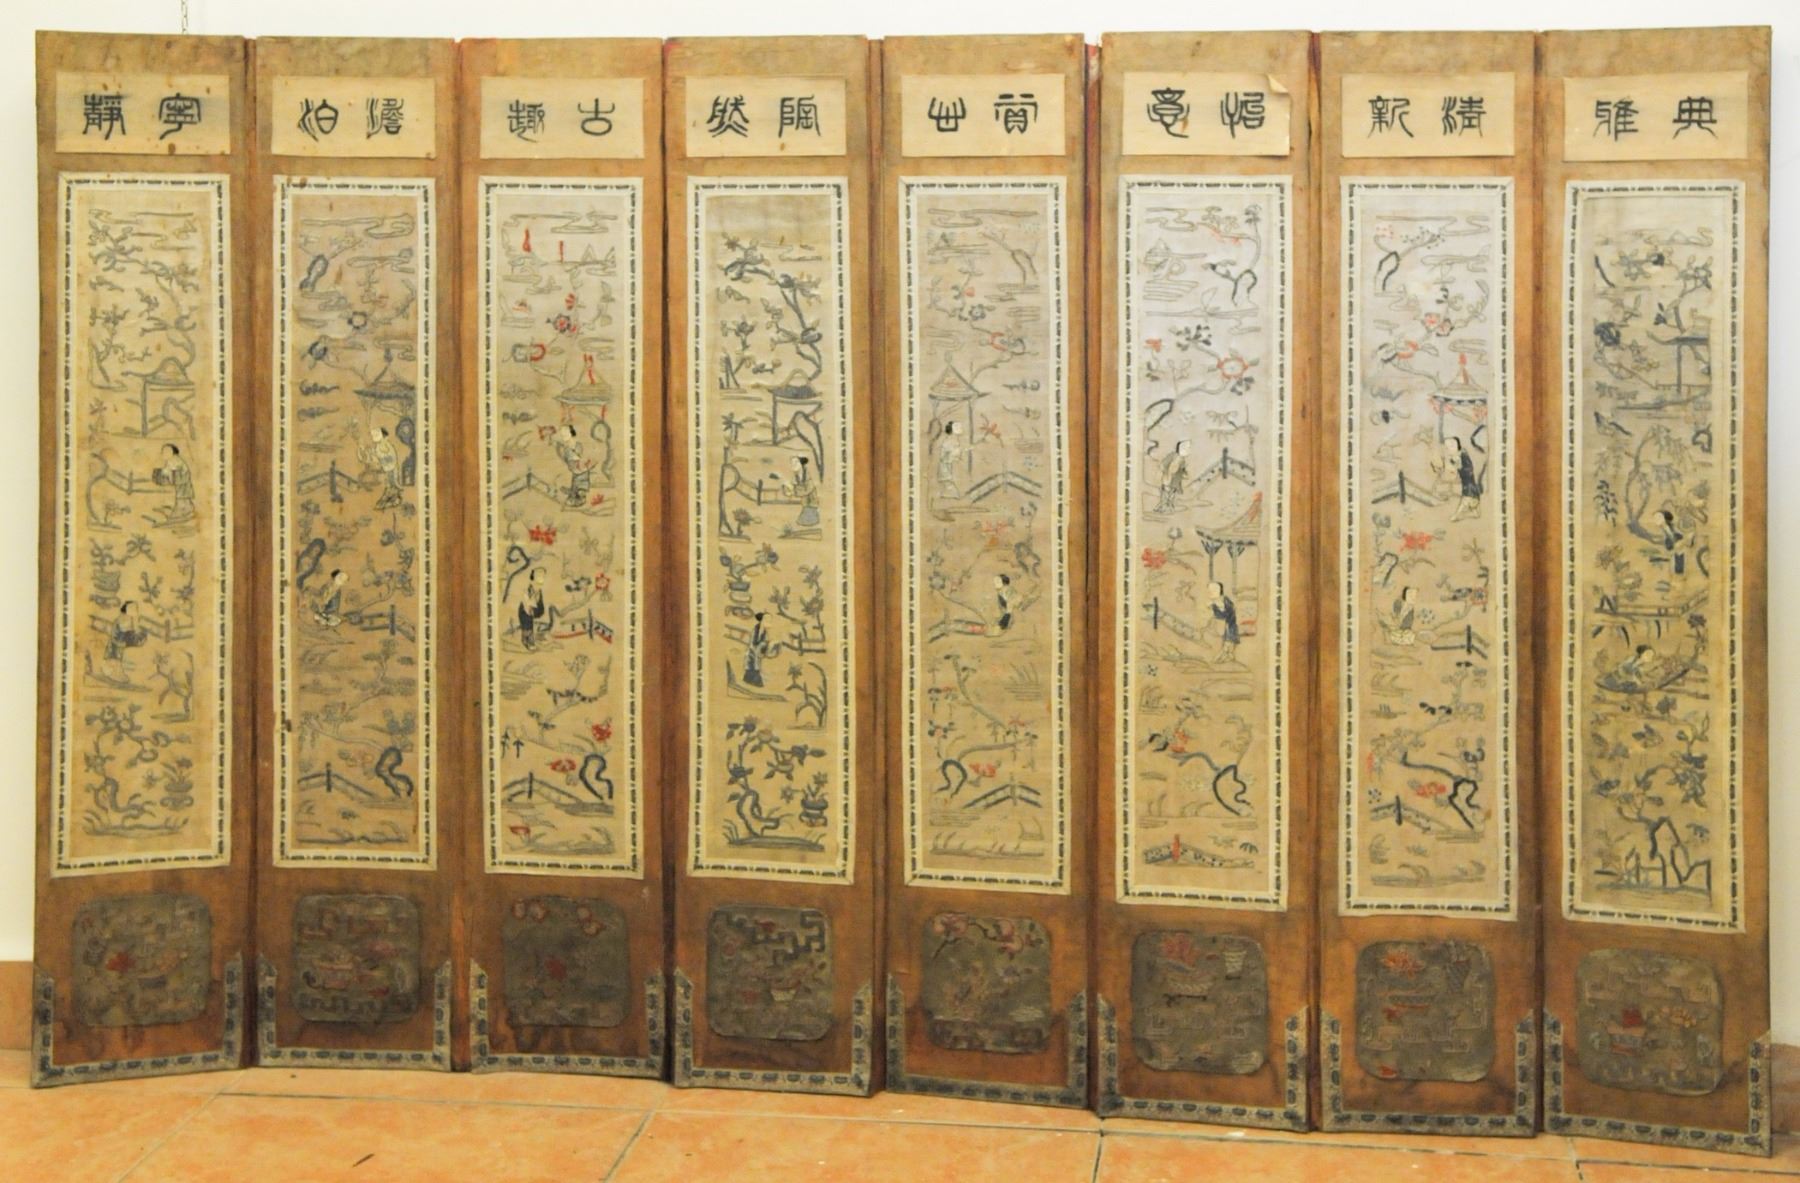 典雅
清新
怡意
陶然
古趣
澹泊
寧靜